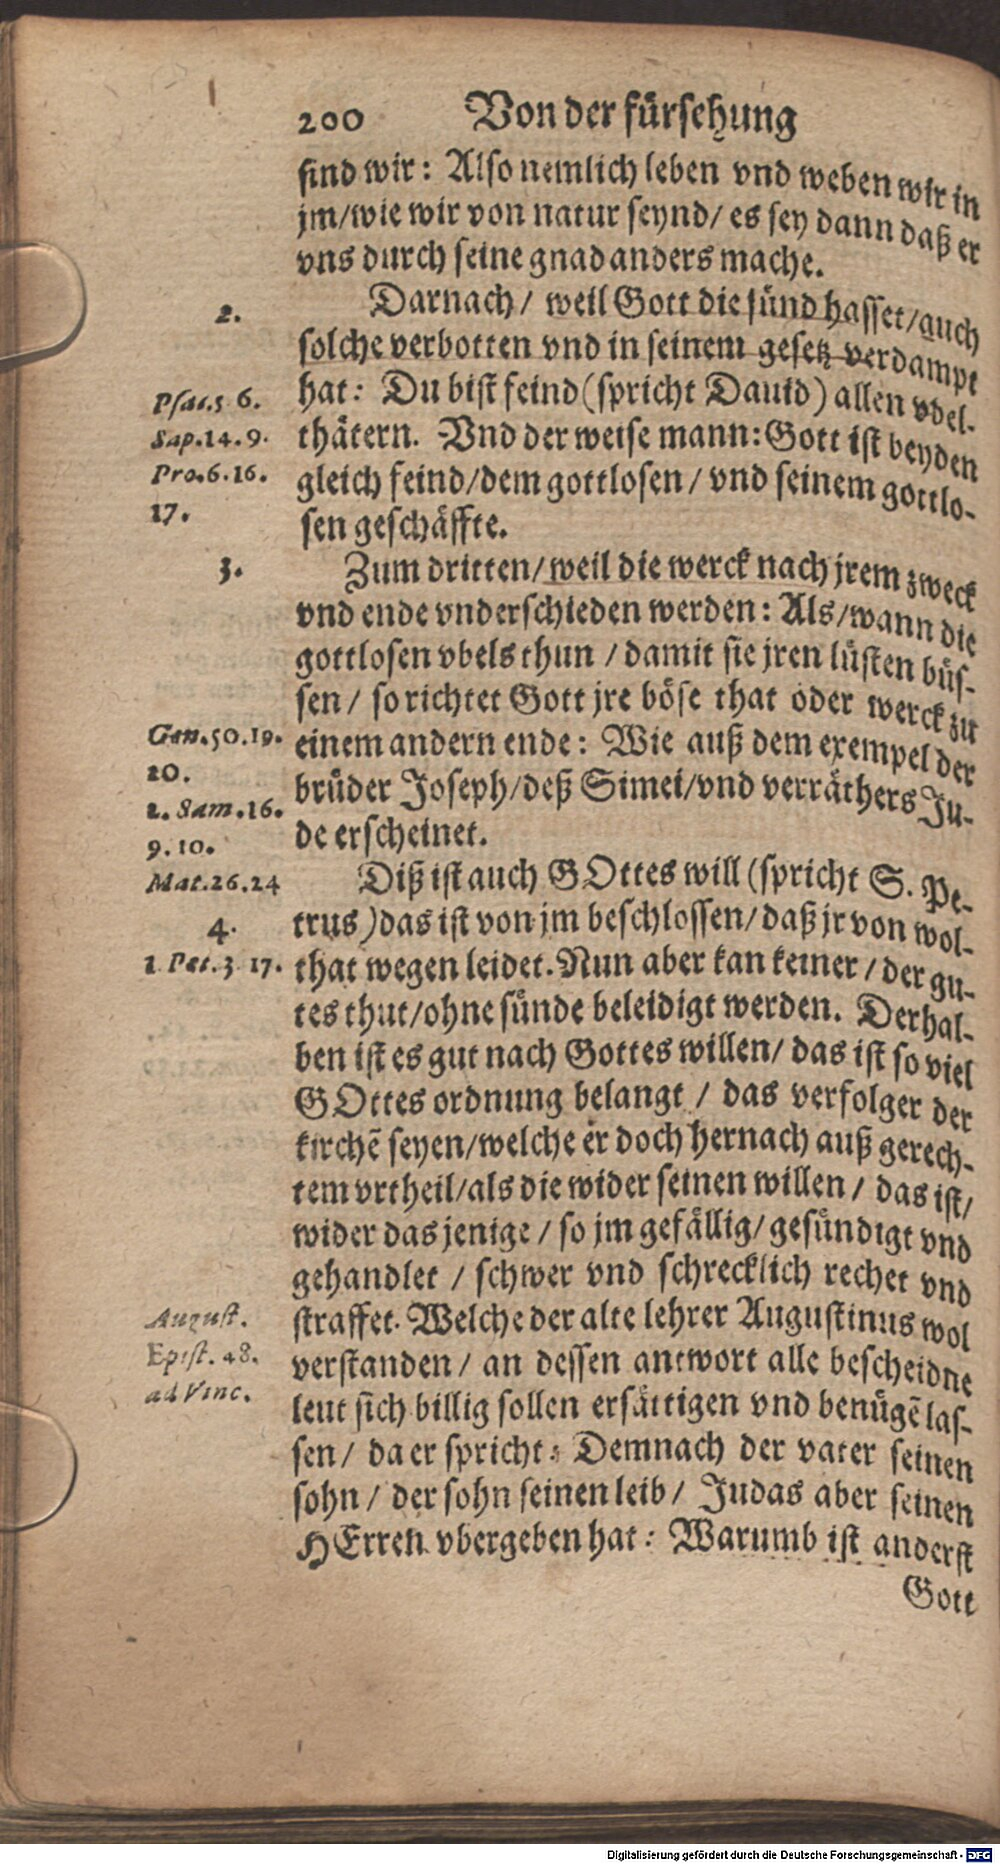 200 Von der fürsehung
sind wir: Also nemlich leben vnd weben wir in
jm/wie wir von natur seynd/ es sey dann daß er
vns durch seine gnad anders mache.
2.
Darnach/ weil Gott die sünd hasset/auch
solche verbotten vnd in seinem gesetz verdampt
Psal.5 6.
hat: Du bist feind (spricht Dauid) allen vbel-
Sap.14.9.
thätern. Vnd der weise mann: Gott ist beyden
Pro.6.16.
gleich feind/dem gottlosen/ vnd seinem gottlo-
17.
sen geschäffte.
3.
Zum dritten/weil die werck nach jrem zweck
vnd ende vnderschieden werden: Als/wann die
gottlosen vbels thun /damit sie jren lüsten büs-
sen/ so richtet Gott jre böse that oder werck zu
Gen.50.19.
einem andern ende: Wie auß dem exempel der
20.
brüder Joseph/deß Simei/vnd verräthers Ju-
2. Sam.16.
de erscheinet.
9.10.
Mat.26.24
Diß ist auch GOttes will (spricht S. Pe-
4.
trus) das ist von jm beschlossen/daß jr von wol-
1 Pet.3 17.
that wegen leidet. Nun aber kan keiner /der gu-
tes thut/ohne sünde beleidigt werden. Derhal-
ben ist es gut nach Gottes willen/ das ist so viel
GOttes ordnung belangt / das verfolger der
kirchē seyen/welche er doch hernach auß gerech-
tem vrtheil/als die wider seinen willen/ das ist/
wider das jenige /so jm gefällig/gesündigt vnd
gehandlet / schwer vnd schrecklich rechet vnd
August.
straffet. Welche der alte lehrer Augustinus wol
Epist. 48.
verstanden/ an dessen antwort alle bescheidne
ad Vinc.
leut sich billig sollen ersättigen vnd benügē las-
sen/ da er spricht: Demnach der vater seinen
sohn/ der sohn seinen leib/ Judas aber seinen
HErren vbergeben hat: Warumb ist anderst
Gott
Digitalisierung gefördert durch die Deutsche Forschungsgemeinschaft - DFG